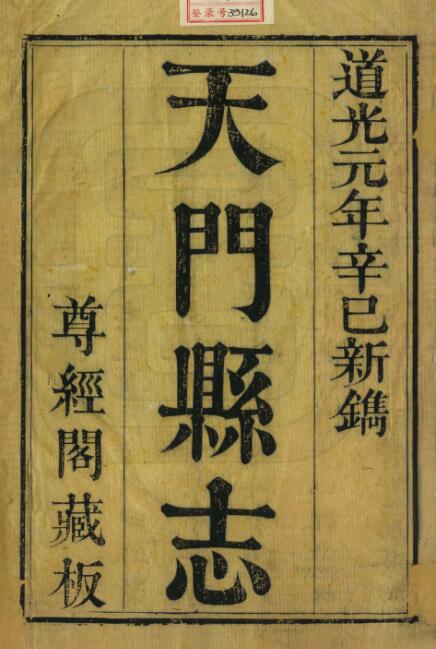 登录号39126
道光元年辛巳新鐫
天門縣志
尊經閣藏板